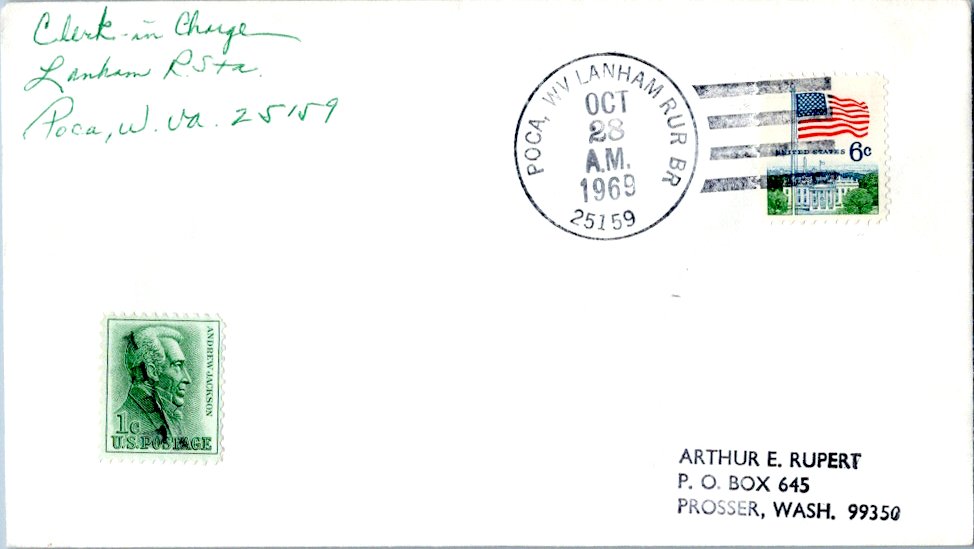 Clerk-in Charge
Lanham R.Sta.
Poca, W. Va. 25159
POCA, WV LANHAM RUR BR
OCT
28
A.M.
1969
25159
UNITED STATES 6c
ANDREW JACKSON
1c
U.S. POSTAGE
ARTHUR E. RUPERT
P. O. BOX 645
PROSSER, WASH. 99350